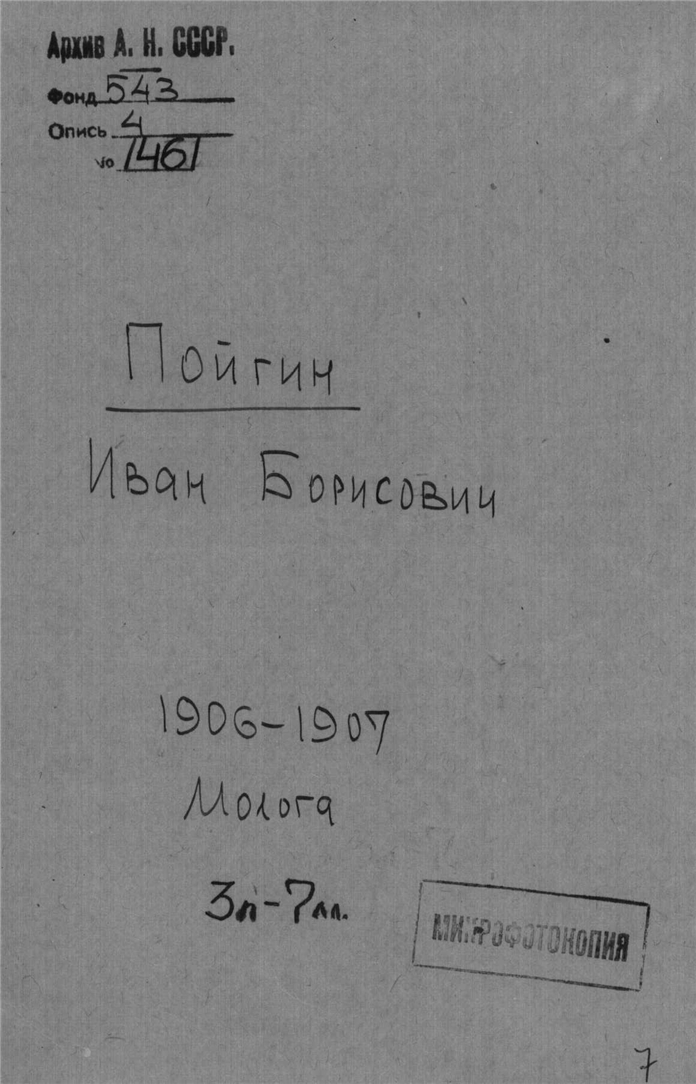 Архив А. Н. СССР.
Фонд 543
Опись 4
№ 1461
Пойгин
Иван Борисович
1906-1907
Молога
3п-7лл.
МИКРОФОТОКОПИЯ
7